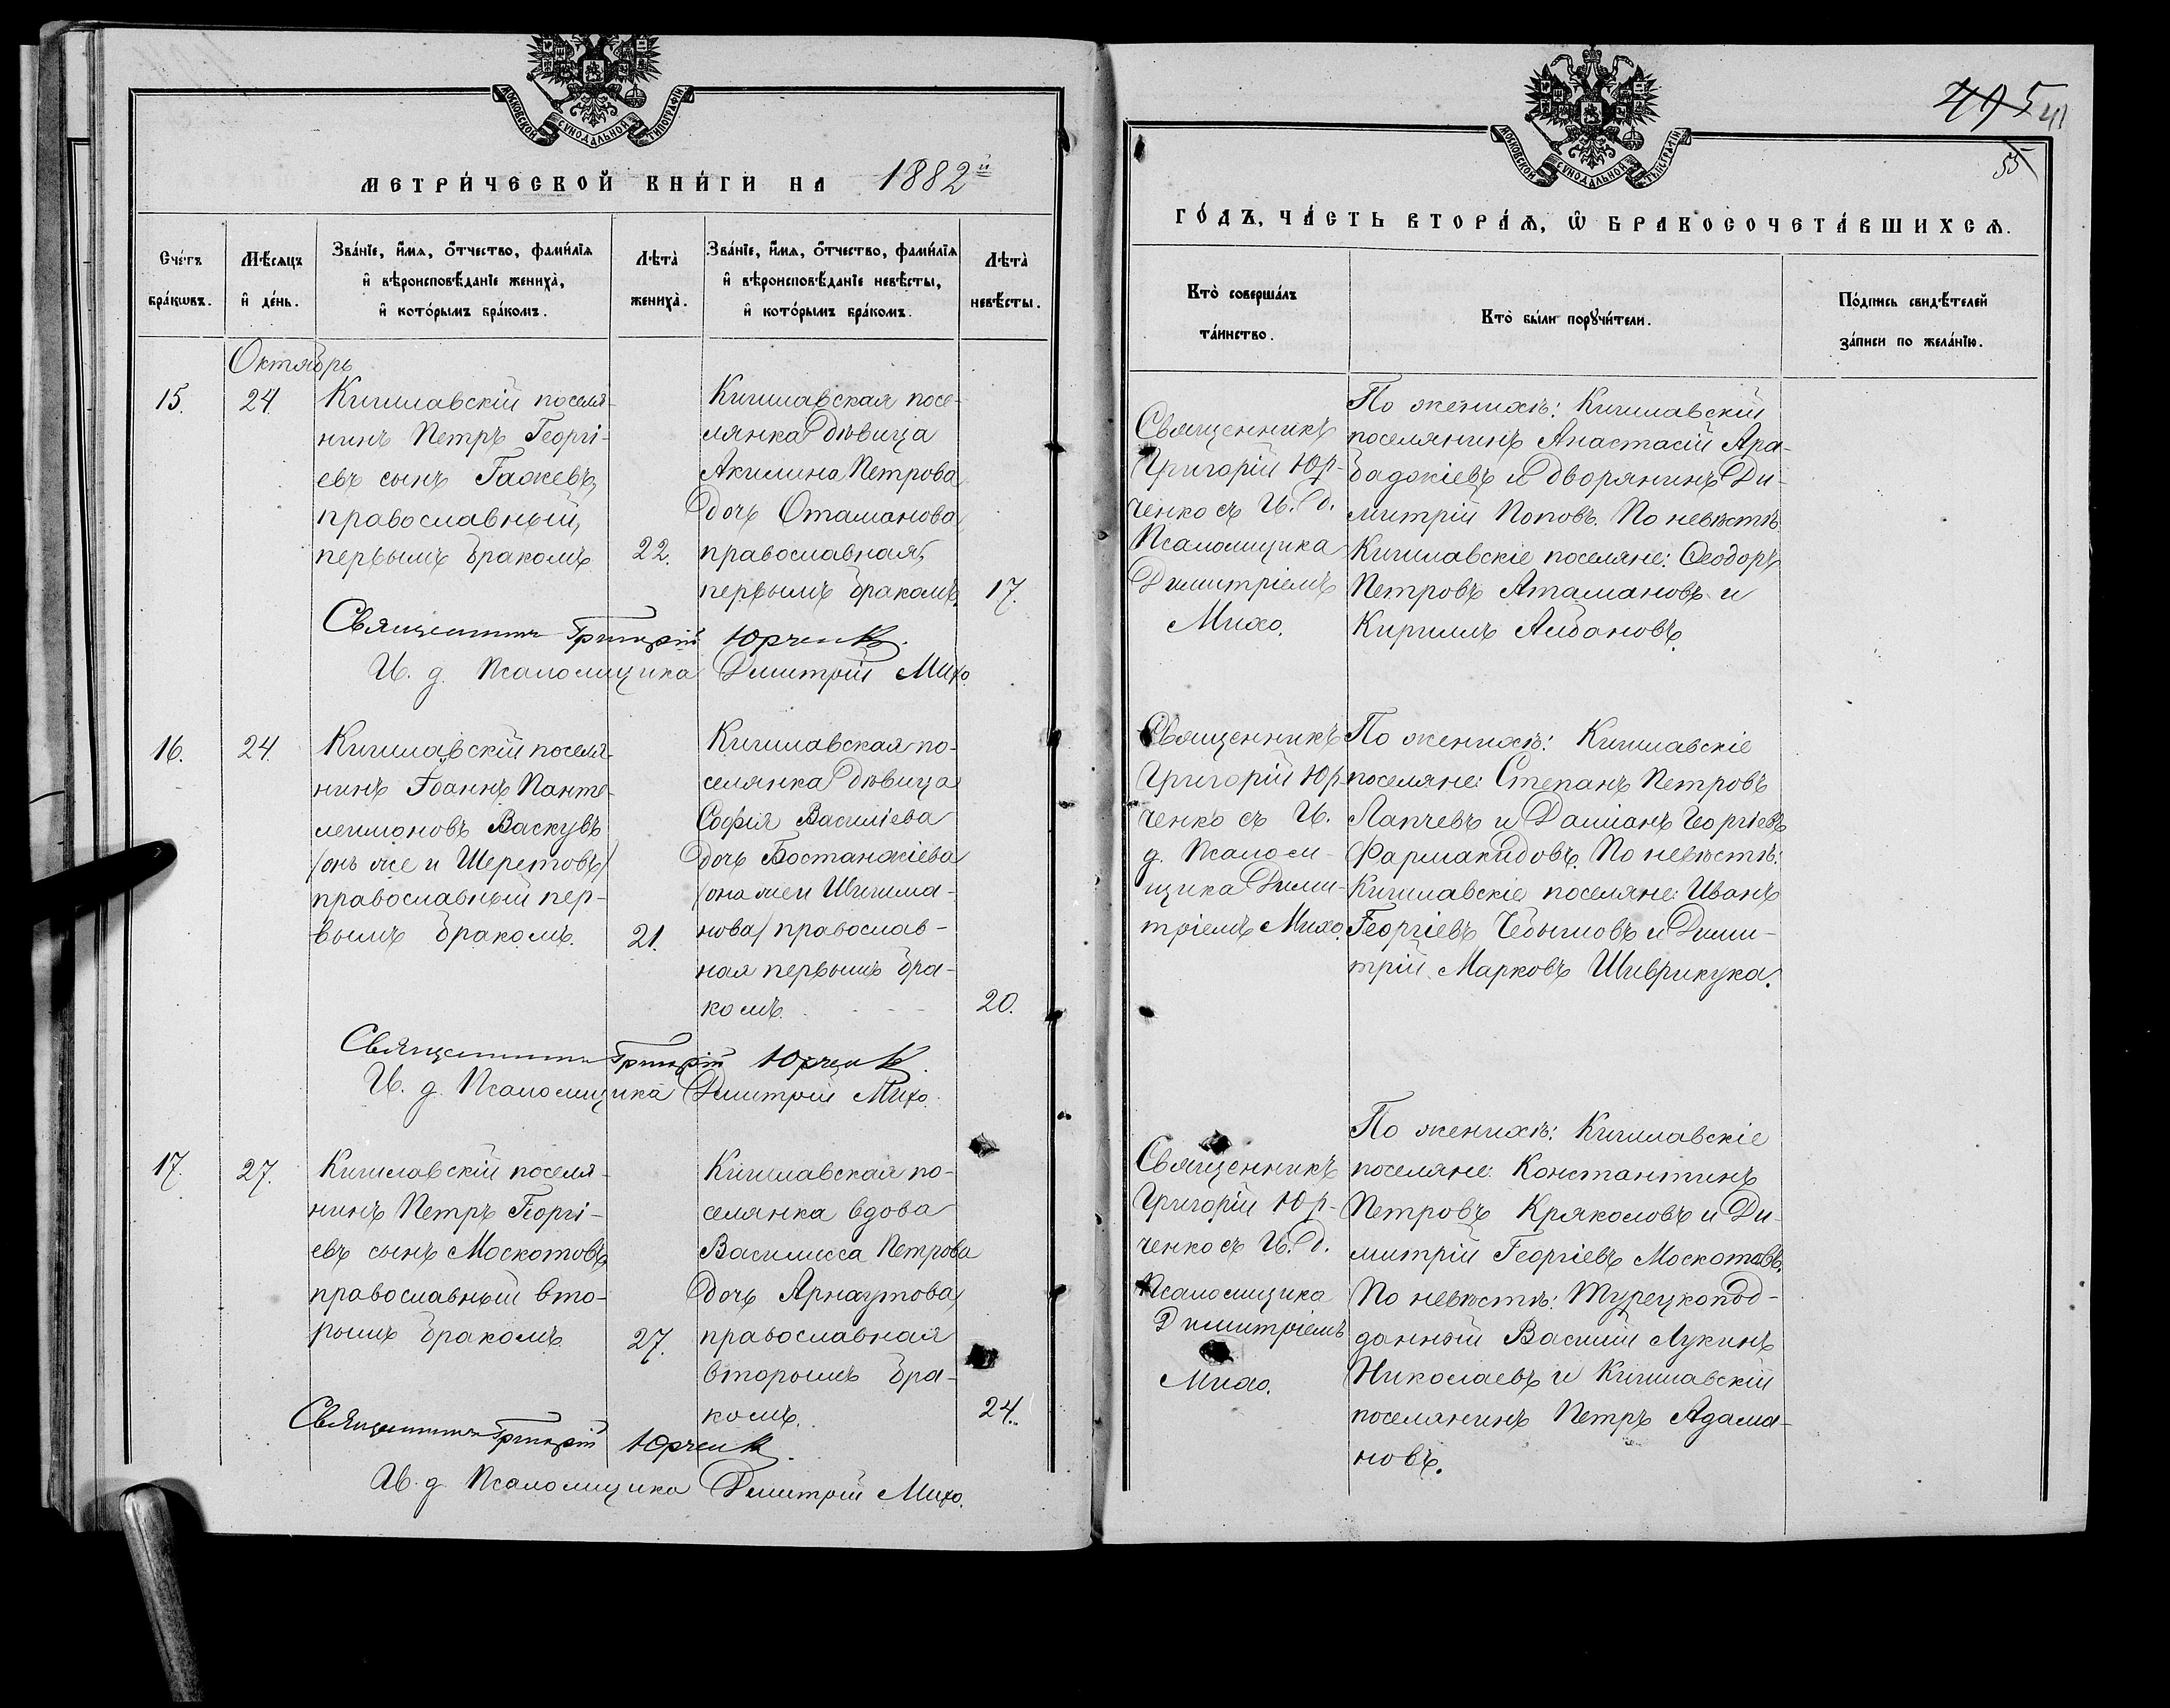 МОСКОВСКОЙ СѴНОДАЛЬНОЙ ТИПОГРАФІИ
МЕТРИ́ЧЕСКОЙ КНИ́ГИ НА 1882й
Сче́тъ бра́кωвъ.
Мѣ́сяцъ и҆ де́нь.
Зва́нїе, и҆́мя, ѻ҆́тчество, фами́лїя
и҆ вѣроисповѣ́данїе жениха̀,
и҆ кото́рымъ бра́комъ.
Лѣта̀ жениха̀.
Зва́нїе, и҆́мя, ѻ҆́тчество, фами́лїя
и҆ вѣроисповѣ́данїе невѣ́сты,
и҆ кото́рымъ бра́комъ.
Лѣта̀ невѣ́сты.
Октябрь
15.
24
Кишлавскій поселя-
нинъ Петръ Георгі-
евъ сынъ Гажевъ,
православный,
первымъ бракомъ
22.
Кишлавская посе-
лянка дѣвица
Акилина Петрова
дочь Отаманова
православная,
первымъ бракомъ.
17.
Священникъ Григорій Юрченко.
И. д. Псаломщика Димитрій Михо.
16.
24.
Кишлавскій поселя-
нинъ Іоаннъ Панте-
леимоновъ Васкувъ
/онъ же и Шеретовъ/
православный пер-
вымъ бракомъ.
21.
Кишлавская по-
селянка дѣвица
Софія Василіева
дочь Бостанжіева
/она же и Шишма-
нова/ православ-
ная первымъ бра-
комъ.
20.
Священникъ Григорій Юрченко.
И. д. Псаломщика Димитрій Михо.
17.
27.
Кишлавскій поселя-
нинъ Петръ Георгі-
евъ сынъ Москотовъ,
православный вто-
рымъ бракомъ.
27.
Кишлавская по-
селянка вдова
Василисса Петрова
дочь Арнаутова,
православная
вторымъ бра-
комъ.
24.
Священникъ Григорій Юрченко.
И. д. Псаломщика Димитрій Михо.
495 41
55
МОСКОВСКОЙ СѴНОДАЛЬНОЙ ТИПОГРАФІИ
ГО́ДЪ, ЧА́СТЬ ВТОРА́Ѧ, Ѽ БРАКОСОЧЕТА́ВШИХСѦ.
Кто̀ соверша́лъ
та́инство.
Кто̀ бы́ли порꙋчи́тели.
По́дпись свидѣ́телей
за́писи по жела́нїю.
Священникъ
Григорій Юр-
ченко съ И. д.
Псаломщика
Димитріемъ
Михо.
По женихѣ: Кишлавскій
поселянинъ Анастасій Ара-
баджіевъ и дворянинъ Ди-
митрій Поповъ. По невѣстѣ
Кишлавскіе поселяне: Ѳеодоръ
Петровъ Атамановъ и
Кириллъ Албановъ.
Священникъ
Григорій Юр-
ченко съ И.
д. Псалом-
щика Дими-
тріемъ Михо.
По женихѣ: Кишлавскіе
поселяне: Степанъ Петровъ
Лапчевъ и Даміанъ Георгіевъ
Фармакидовъ. По невѣстѣ:
Кишлавскіе поселяне: Иванъ
Георгіевъ Чебышовъ и Дими-
трій Марковъ Шиврикука.
Священникъ
Григорій Юр-
ченко съ И. д.
Псаломщика
Димитріемъ
Михо.
По женихѣ: Кишлавскіе
поселяне: Константинъ
Петровъ Кряколовъ и Ди-
митрій Георгіевъ Москотовъ.
По невѣстѣ: Турецкопод-
данный Василій Лукинъ
Николаевъ и Кишлавскій
поселянинъ Петръ Адама-
новъ.